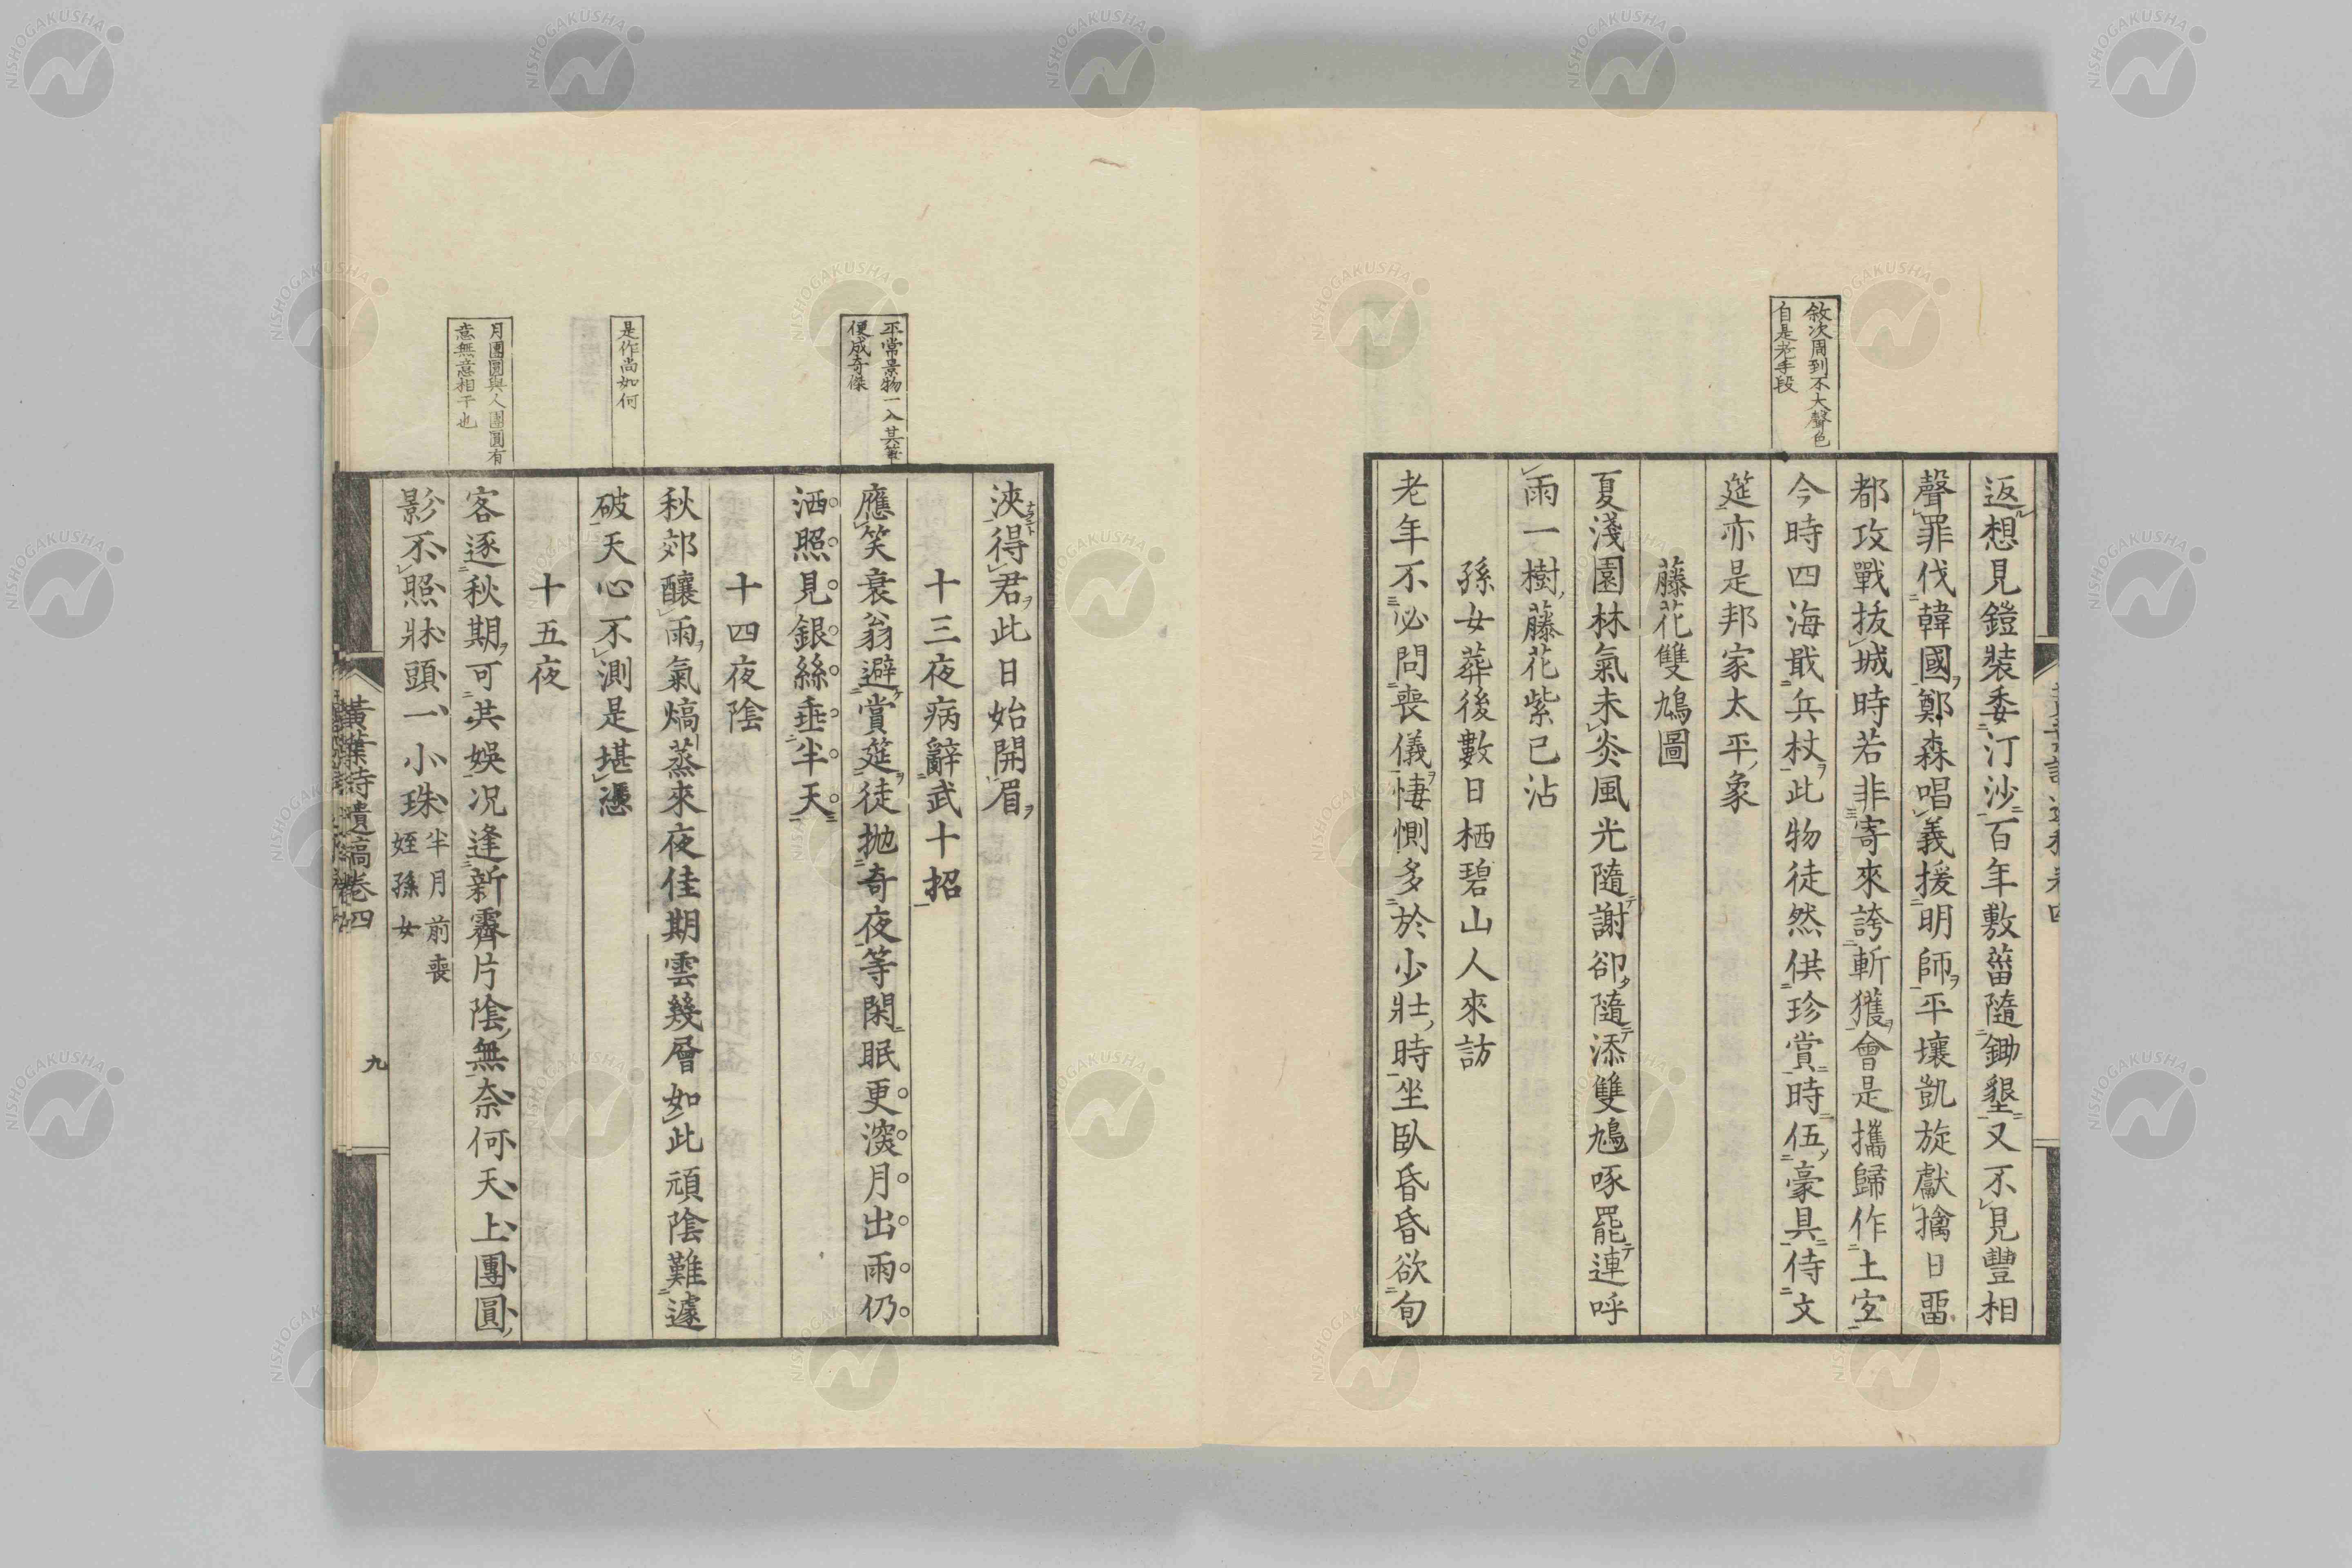 敘次周到不大聲色
自是老手段
返想見鎧裝委汀沙百年敷菑隨鋤墾又不見豐相
聲罪伐韓國鄭森唱義援明師平壤凱旋獻擒日畱
都攻戰拔城時若非寄來誇斬獲會是攜歸作土宜
今時四海戢兵杖此物徒然供珍賞時伍豪具侍文
筵亦是邦家太平象
藤花雙鳩圖
夏淺園林氣未炎風光隨謝卻隨添雙鳩啄罷連呼
雨一樹藤花紫已沾
孫女葬後數日栖碧山人來訪
老年不必問喪儀悽惻多於少壯時坐臥昏昏欲旬
平常景物一入其筆
便成奇傑
是作尚如何
月團圓與人團圓有
意無意相干也
浹得君此日始開眉
十三夜病辭武十招
應笑衰翁避賞筵徒抛奇夜等閑眠更深月出雨仍
洒照見銀絲垂半天
十四夜陰
秋郊釀雨氣熇蒸來夜佳期雲幾層如此頑陰難遽
破天心不測是堪憑
十五夜
客逐秋期可共娛况逢新霽片陰無奈何天上團圓
影不照牀頭一小珠 半月前喪
姪孫女
黃葉詩遺稿卷四
九
NISHOGAKUSHA